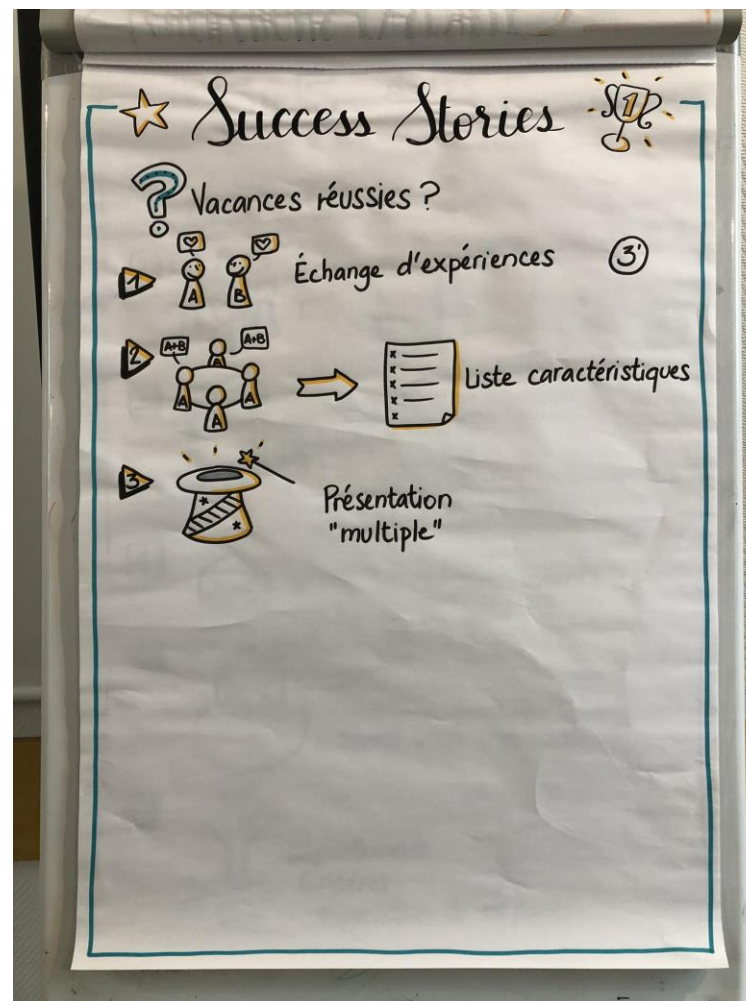 Success Stories 1
? Vacances réussies ?
1 A B Échange d'expériences 3'
2 A+B A+B A A A A Liste caractéristiques
3 Présentation
"multiple"